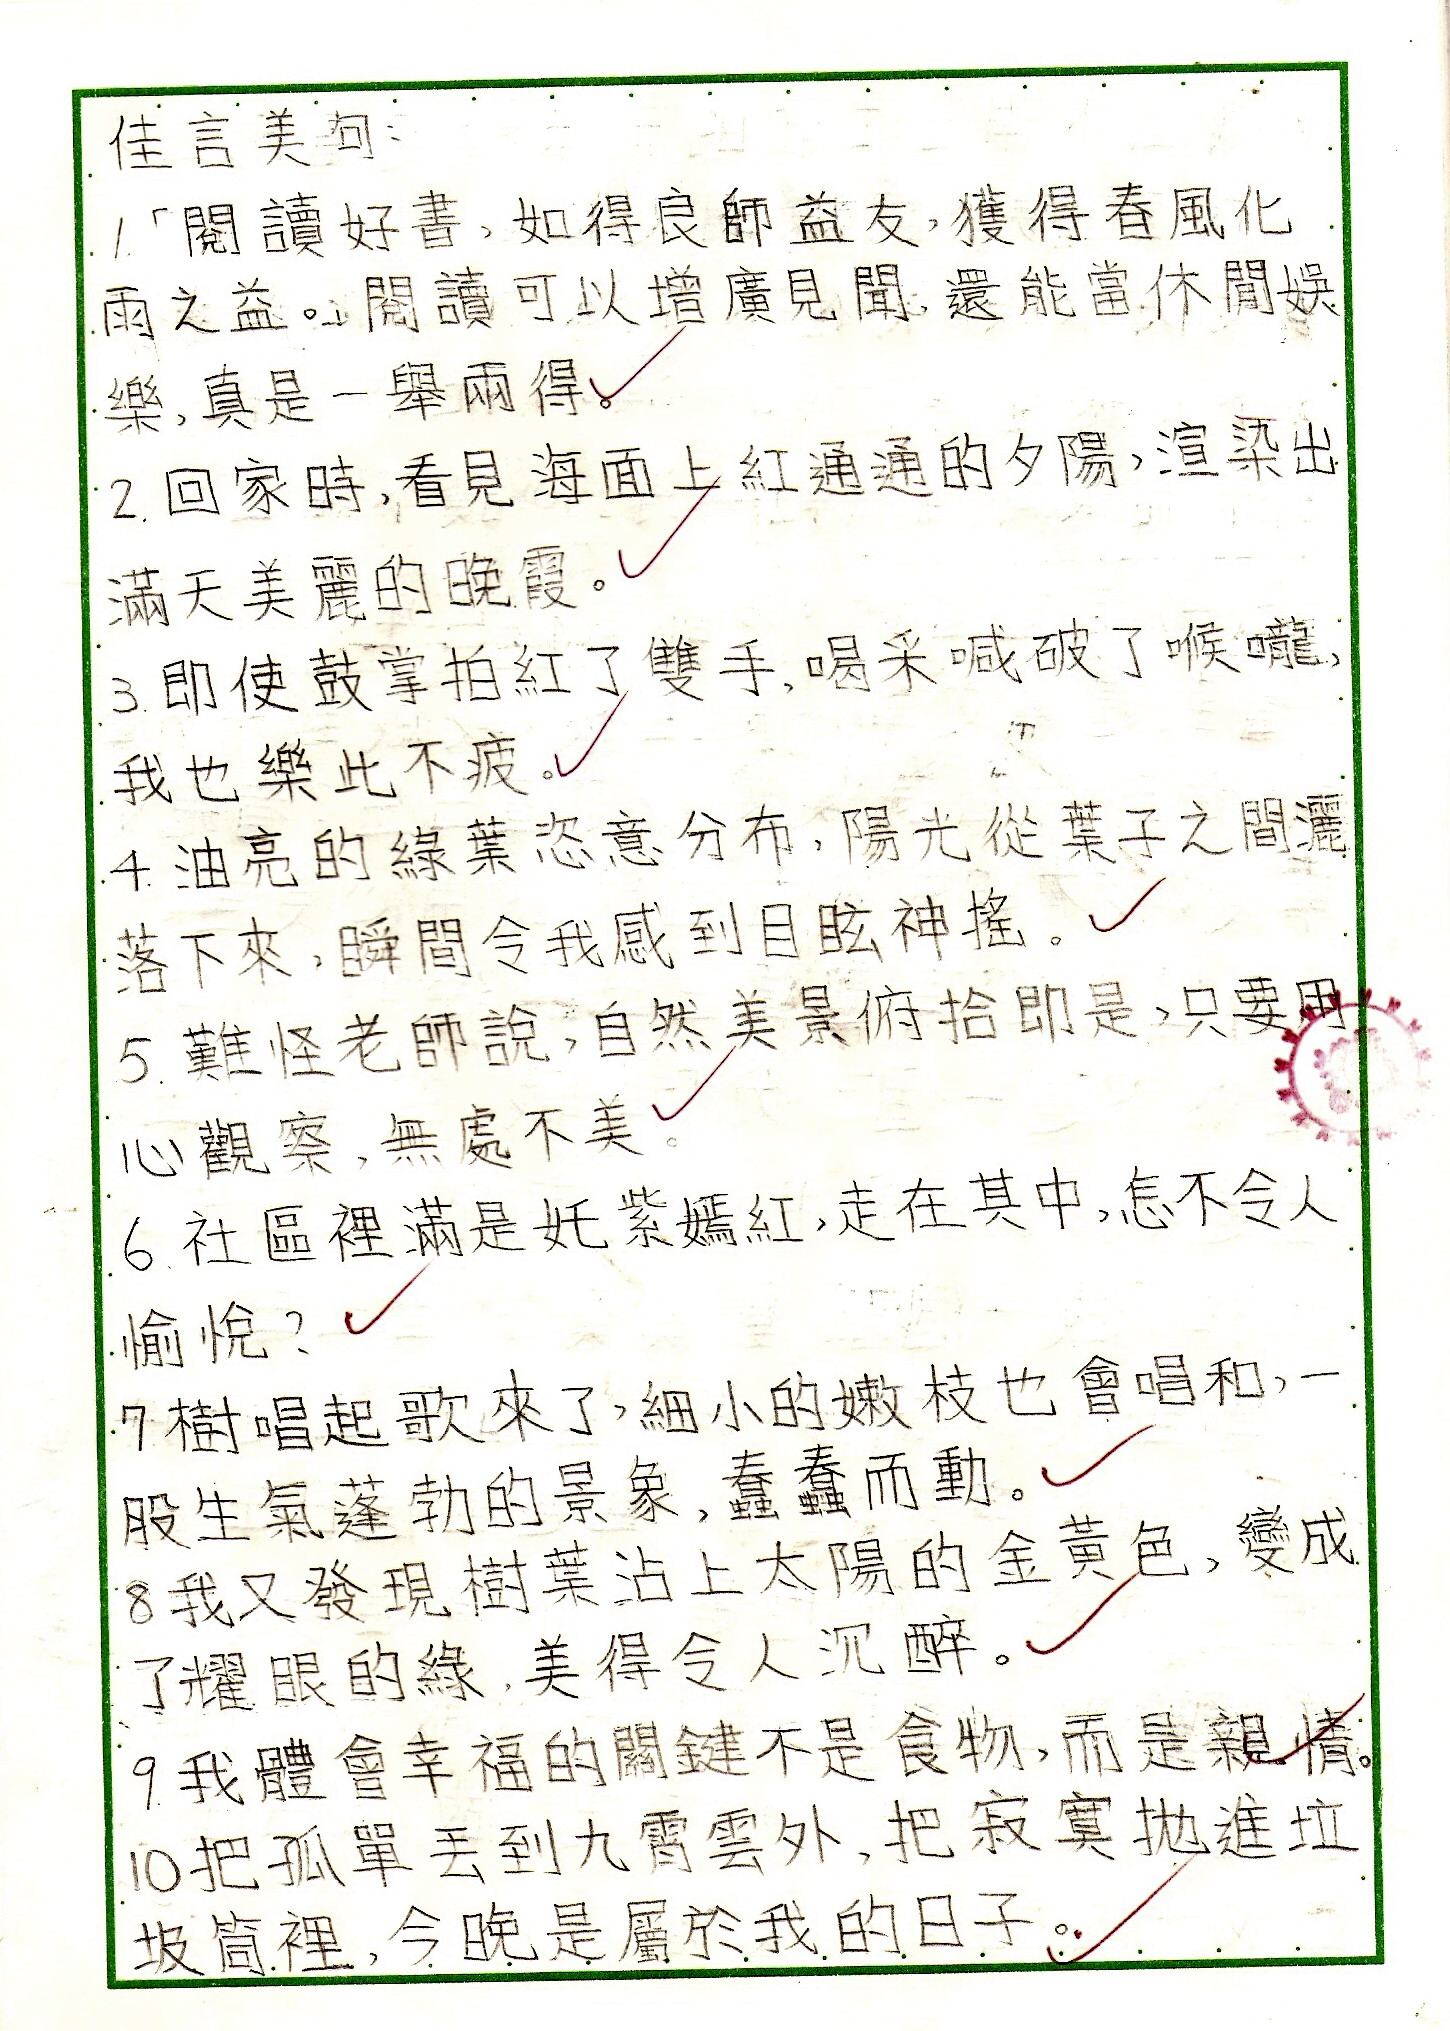 佳言美句:
1.「閱讀好書,如得良師益友,獲得春風化
雨之益。」閱讀可以增廣見聞,還能當休閒娛
樂,真是一舉兩得。
2.回家時,看見海面上紅通通的夕陽,渲染出
滿天美麗的晚霞。
3.即使鼓掌拍紅了雙手,喝采喊破了喉嚨,
我也樂此不疲。
4.油亮的綠葉恣意分布,陽光從葉子之間灑
落下來,瞬間令我感到目眩神搖。
5.難怪老師說,自然美景俯拾即是,只要用
心觀察,無處不美。
6.社區裡滿是奼紫嫣紅,走在其中,怎不令人
愉悅?
7樹唱起歌來了,細小的嫩枝也會唱和,一
股生氣蓬勃的景象,蠢蠢而動。
8我又發現樹葉沾上太陽的金黃色,變成
了耀眼的綠,美得令人沉醉。
9.我體會幸福的關鍵不是食物,而是親情。
10把孤單丟到九霄雲外,把寂寞拋進垃
圾筒裡,今晚是屬於我的日子。